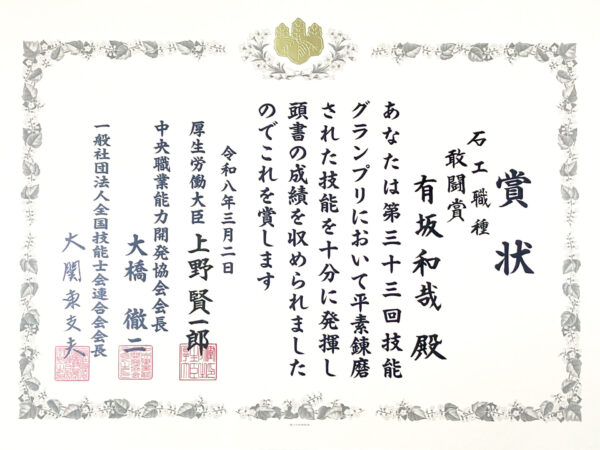 賞状
石工職種
敢闘賞
有坂和哉 殿
あなたは第三十三回技能
グランプリにおいて平素錬磨
された技能を十分に発揮し
頭書の成績を収められました
のでこれを賞します
令和八年三月二日
厚生労働大臣 上野賢一郎
中央職業能力開発協会会長
大橋徹二
一般社団法人全国技能士会連合会会長
大関東支夫